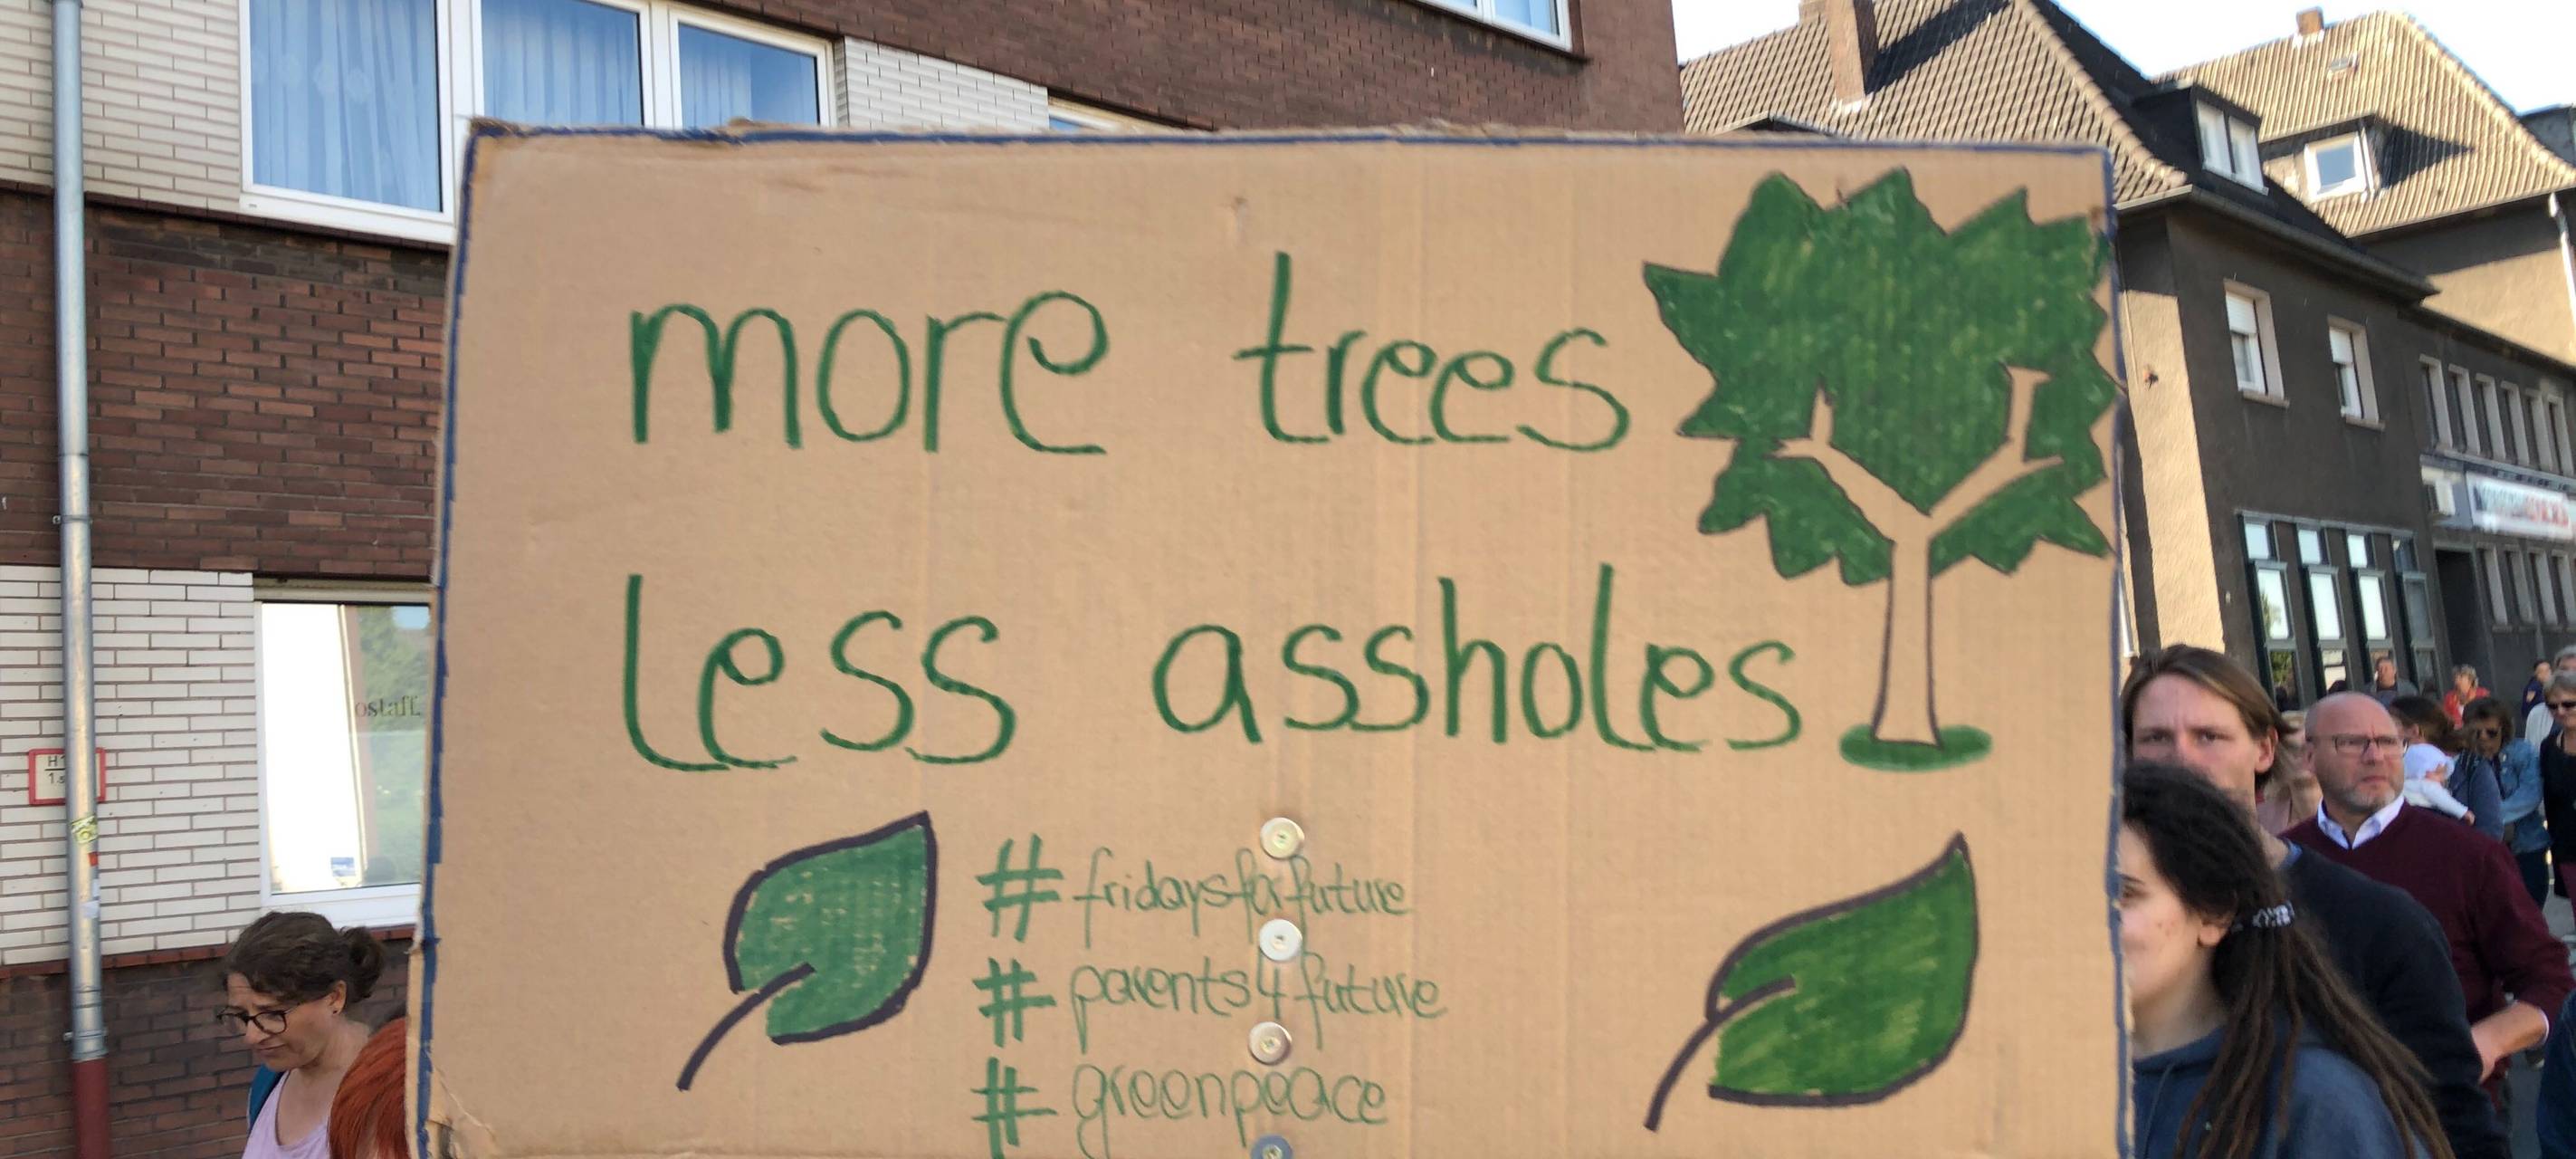 more trees
less assholes
#fridaysforfuture
#parents4future
#greenpeace
ostaff.